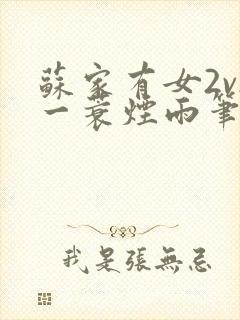 蘇家有女2v
一蓑煙雨筆
我是張無忌